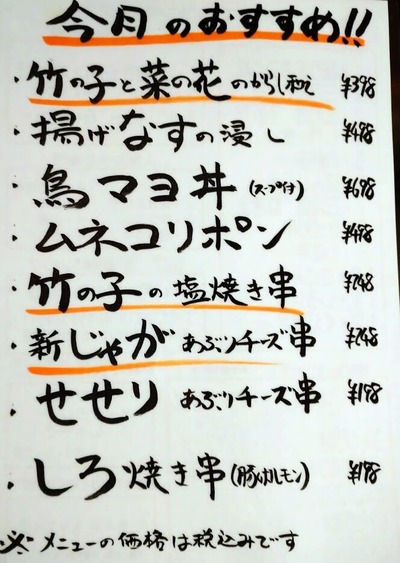 今月のおすすめ!!
・竹の子と菜の花のからし和え ¥398
・揚げなすの浸し ¥498
・鳥マヨ丼(スープ付) ¥698
・ムネコリポン ¥498
・竹の子の塩焼き串 ¥248
・新じゃがあぶりチーズ串 ¥248
・せせりあぶりチーズ串 ¥198
・しろ焼き串(豚ホルモン) ¥198
※メニューの価格は税込みです